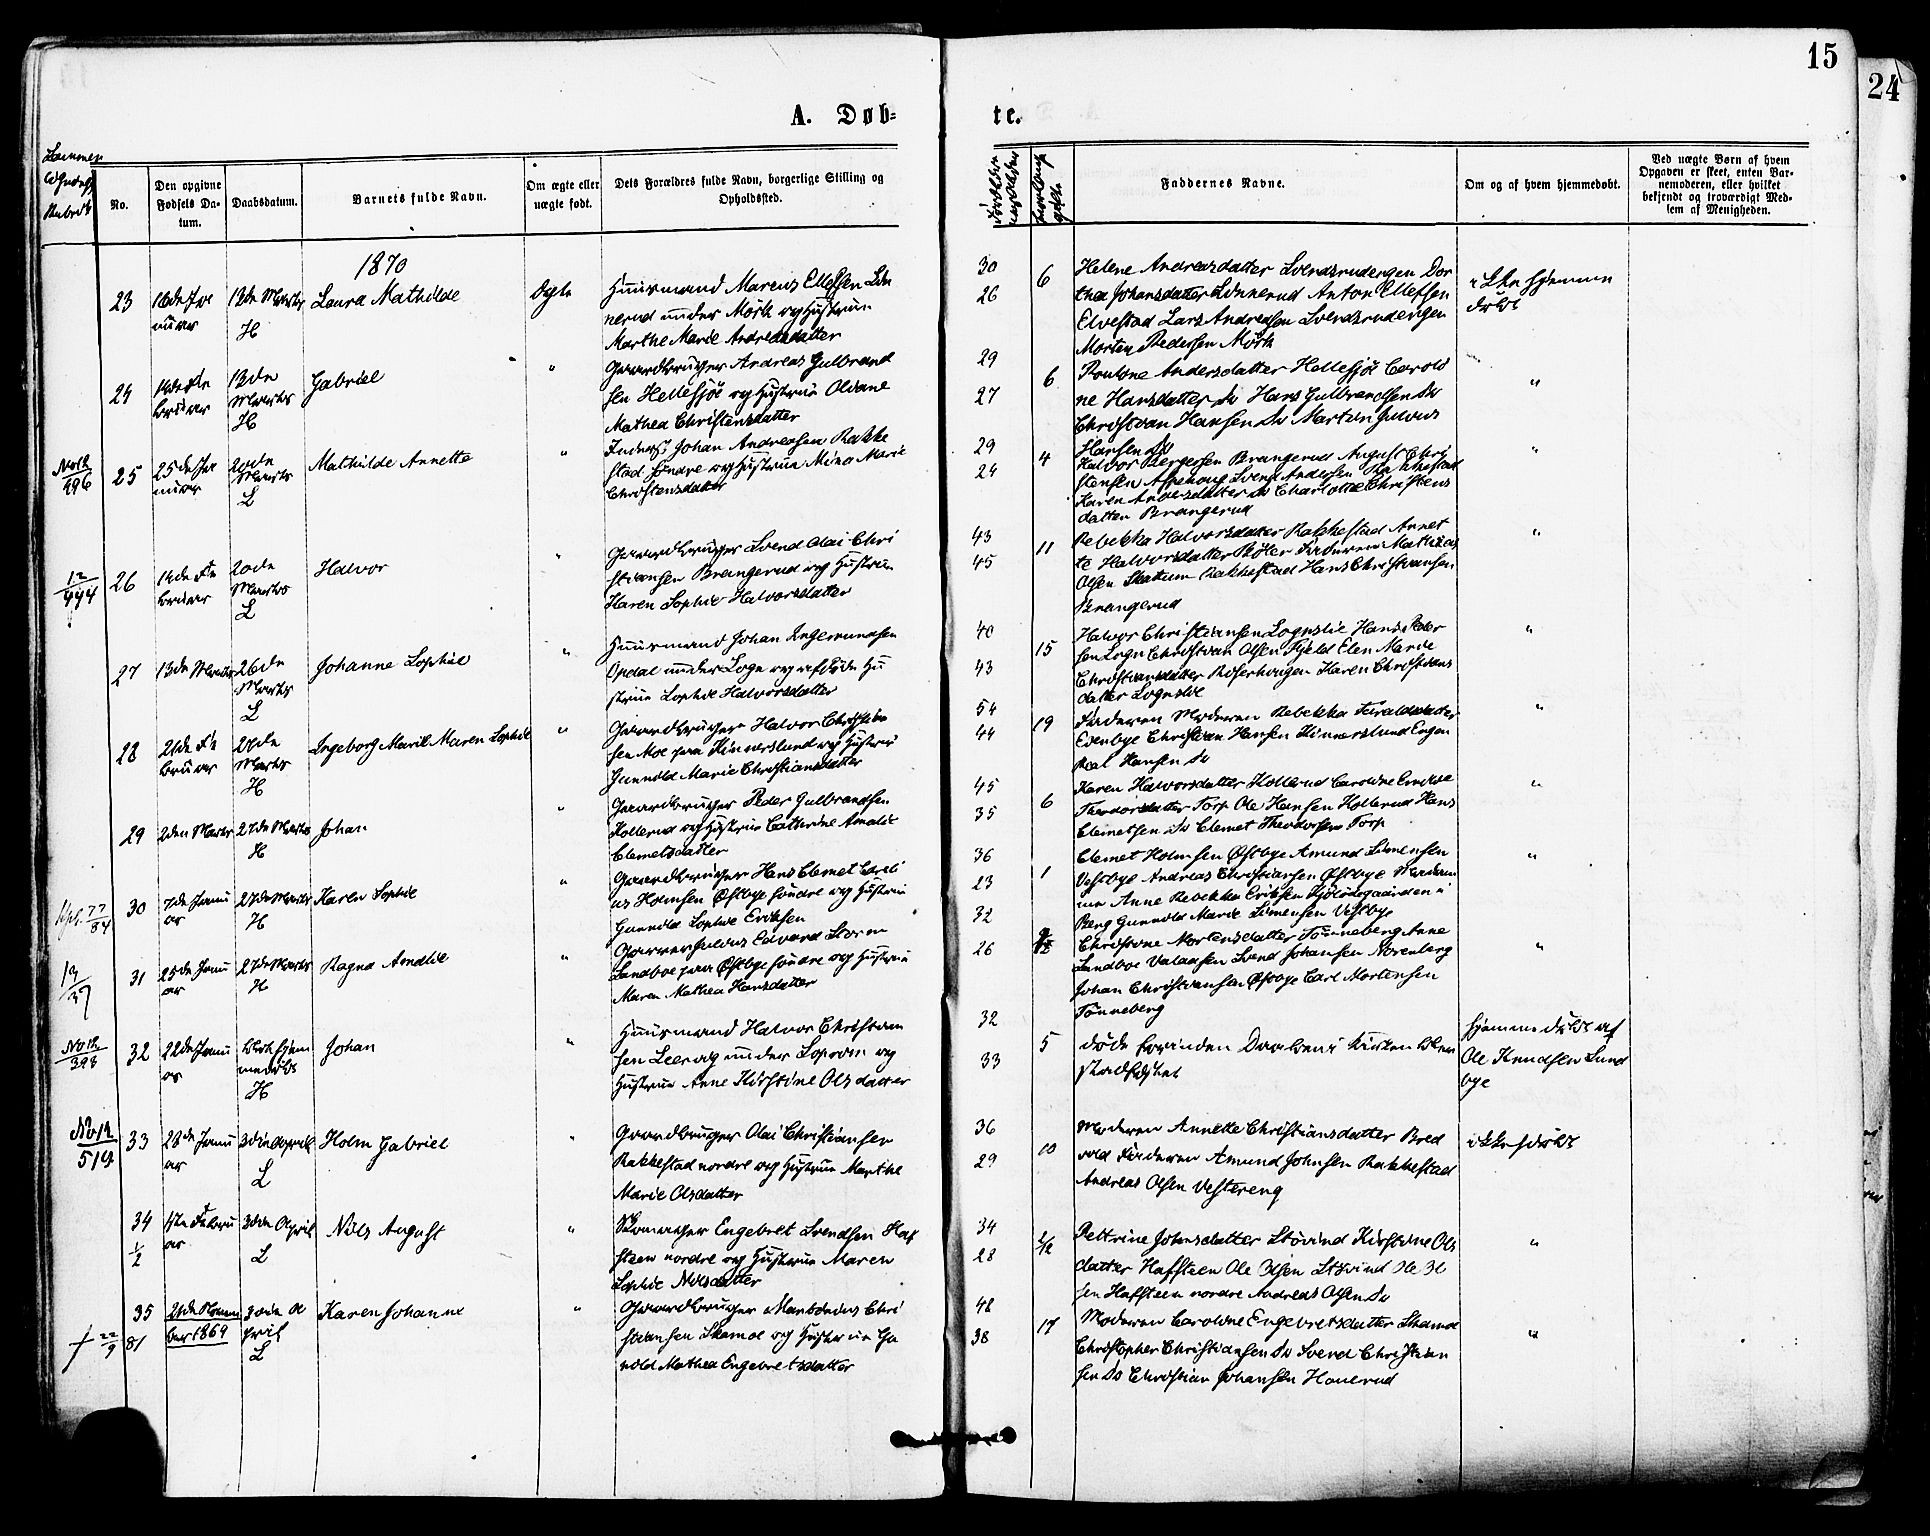 15
24
A. Døb=
te.
No.
Den opgivne Fødsels Da-
tum.
Daabsdatum.
Barnets fulde Navn.
Om ægte eller
uægte født.
Dets Forældres fulde Navn, borgerlige Stilling og
Opholdssted.
Faddernes Navne.
Om og af hvem hjemmedøbt.
Ved uægte Børn af hvem
Opgaven er skeet, enten Bar-
nemoderen, eller hvilket
bekjendt og troværdigt Med-
lem af Menigheden.
1870
23
13de Marts
H
Laura Mathilde
Ægte
Huusmand Marius Ellefsen
under Mørk og Hustrue
Marthe Marie Andreasdatter
30
26
6
Helene Andreasdatter Svendsrudengen Dor
thea Johansdatter Anton Ellefsen
Elvestad Lars Andreasen Svendsrudengen
Morten Pedersen Mørk
ikke hjemme
døbt
24
14de Fe
bruar
13de
Marts
H
Gabriel
"
Gaardbruger Andreas Gulbrand
sen Hellesjøe og Hustrue Oleane
Mathea Christensdatter
29
27
6
Andersdatter Hellesjø Caroli
ne Hansdatter Do Hans Gulbrandsen Do
Christian Hansen Do Martin Julius
Hansen Do
"
No 12
496
25
25de Ja
nuar
20de
Marts
L
Mathilde Annette
"
Inderst Johan Andreasen Rakke
stad søndre og Hustrue Mina Marie
Christensdatter
29
24
4
Halvor Bergersen Brangerud August Chri
stensen Aspehoug Svend Andersen Rakkestad
Karen Andersdatter Do Charlotte Christens
datter Brangerud
"
12
444
26
14de Fe
bruar
20de
Marts
L
Halvor
"
Gaardbruger Svend Olai Chri
stiansen Brangerud og Hustrue
Karen Sophie Halvorsdatter
43
45
11
Rebekka Halvorsdatter Rakkestad Annet
te Halvorsdatter Bøler Faderen Mathias
Olsen Skatum Rakkestad Hans Christiansen
Brangerud
"
27
13de Marts
26de
Marts
L
Johanne Sophie
"
Huusmand Johan Ingemundsen
Opdal under Logn og afdøde Hu
strue Sophie Halvorsdatter
40
43
15
Halvor Christiansen Lognslie Hans Peder
sen Logn Christian Olsen Fjeld Elen Marie
Christiansdatter Roserhougen Karen Christians
datter Lognslie
"
28
21de Fe
bruar
27de
Marts
H
Ingeborg Marie Maren Sophie
"
Gaardbruger Halvor Christian
sen Moe paa Kinnerslund og Hustrue
Gunnild Marie Christiansdatter
54
44
19
Faderen Moderen Rebekka Taraldsdatter
Evenbye Christian Hansen Kinnerslund Engen
Hansen Do
"
29
2den Marts
27de Marts
H
Johan
"
Gaardbruger Peder Gulbrandsen
Kollerud og Hustrue Cathrine Amalie
Clemetsdatter
45
35
6
Karen Halvorsdatter Kollerud Caroline Emilie
Theodorsdatter Torp Ole Hansen Kollerud Hans
Clemetsen Do Clemet Theodorsen Torp
"
77
34
30
7de Janu
ar
27de Marts
H
Karen Sophie
"
Gaardbruger Hans Clemet Corli
us Holmsen Østbye søndre og Hustrue
Gunnild Sophie Eriksen
36
23
1
Clemet Holmsen Østbye Amund Simensen
Vestbye Andreas Christiansen Østbye Moderen
Anne Rebekka Eriksen Kjølstegaarden i
Berg Gunnild Marie Simensen Vestbye
"
13
37
31
25de Janu
ar
27de Marts
H
Ragna Amalie
"
Garversvend Edvard Storm
Sandboe paa Østbye søndre og Hustrue
Maren Mathea Hansdatter
32
26
Christine Mortensdatter Tønneberg Anne
Sandboe Valaasen Svend Johansen Norenberg
Johan Christiansen Østbye Carl Mortensen
Tønneberg
"
No 12
393
32
22de Janu
ar
H
Johan
"
Huusmand Halvor Christian
sen under og
Hustrue Anne Kirstine Olsdatter
32
33
5
døde forinden Daaben i Kirken blev
stadfæstet
hjemmedøbt af
Ole Knudsen Sund
bye
No 12
514
33
28de Janu
ar
3die April
L
Holm Gabriel
"
Gaardbruger Olai Christiansen
Rakkestad nordre og Hustrue Marthe
Marie Olsdatter
36
29
10
Moderen Annette Christiansdatter Bred
vad Faderen Amund Johnsen Rakkestad
Andreas Olsen Vestereng
ikke hjdøbt
34
1
2
4de Febru
ar
3die April
L
Nils August
"
Skomager Engebret Svendsen Haf
steen nordre og Hustrue Maren
Sophie Nilsdatter
34
28
2/2
Pettrine Johnsdatter Støvind Kirstine Ols
datter Hafsteen Ole Olsen Støvind Ole Ol
sen Haffsteen nordre Andreas Olsen Do
"
22
9
81
35
21de Novem
ber 1869
3die A
pril
L
Karen Johanne
"
Gaardbruger Mathias Chri
stiansen Skamol og Hustrue Gu
nild Mathea Engebretsdatter
48
38
17
Moderen Caroline Engebretsdatter Skamol
Christopher Christiansen Do Svend Christian
sen Do Christian Johansen Honerud
"